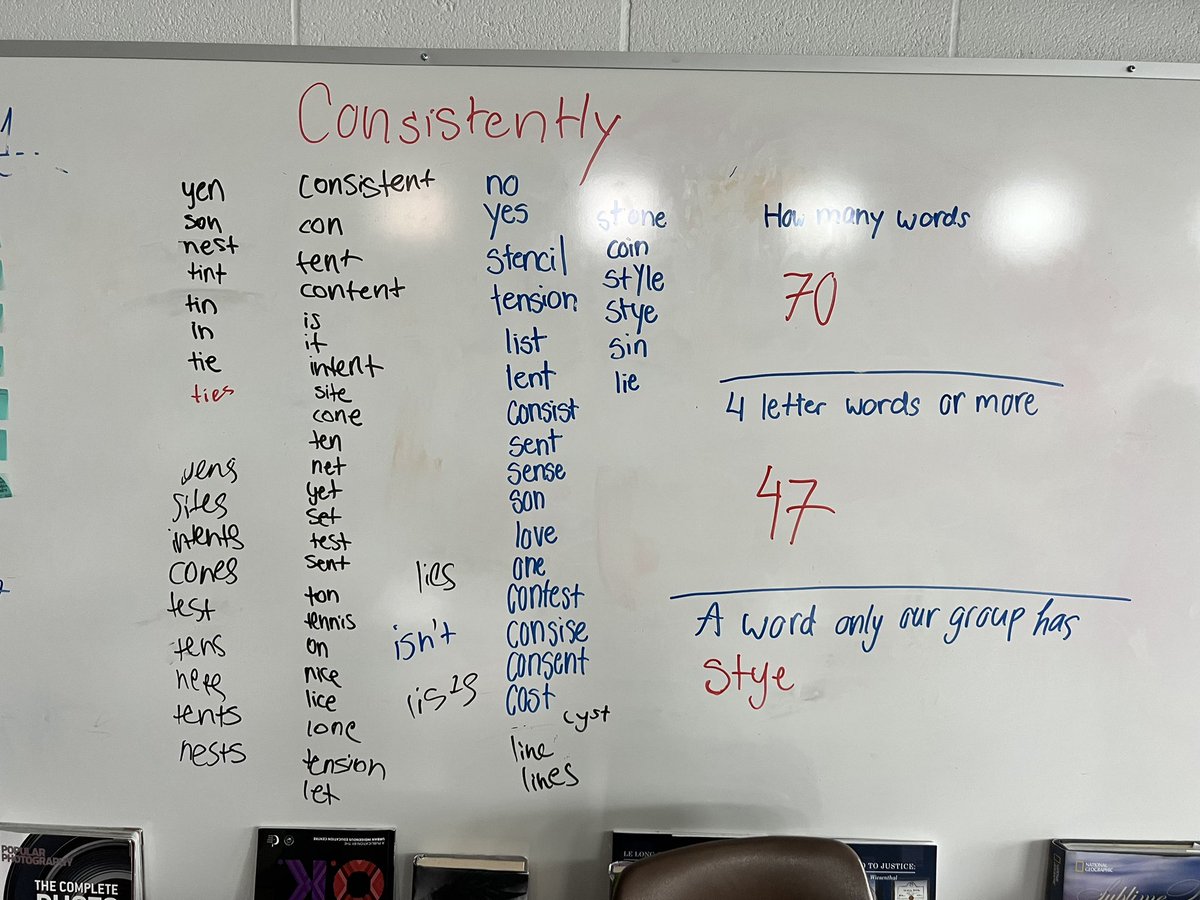 Consistently
yen
son
nest
tint
tin
in
tie
ties
yens
sites
intents
cones
test
tens
tents
nests
consistent
con
tent
content
is
it
intent
site
cone
ten
net
yet
set
test
sent
ton
tennis
on
nice
lice
lone
tension
let
lies
isn't
no
yes
stencil
tension
list
lent
consist
sent
sense
son
love
one
contest
consise
consent
cost
cyst
line
lines
stone
coin
style
stye
sin
lie
How many words
70
4 letter words or more
47
A word only our group has
stye
POPULAR
PHOTOGRAPHY
THE COMPLETE
LE LONG
D TO JUSTICE:
Wiesenthal
NATIONAL
GEOGRAPHIC
Sublime